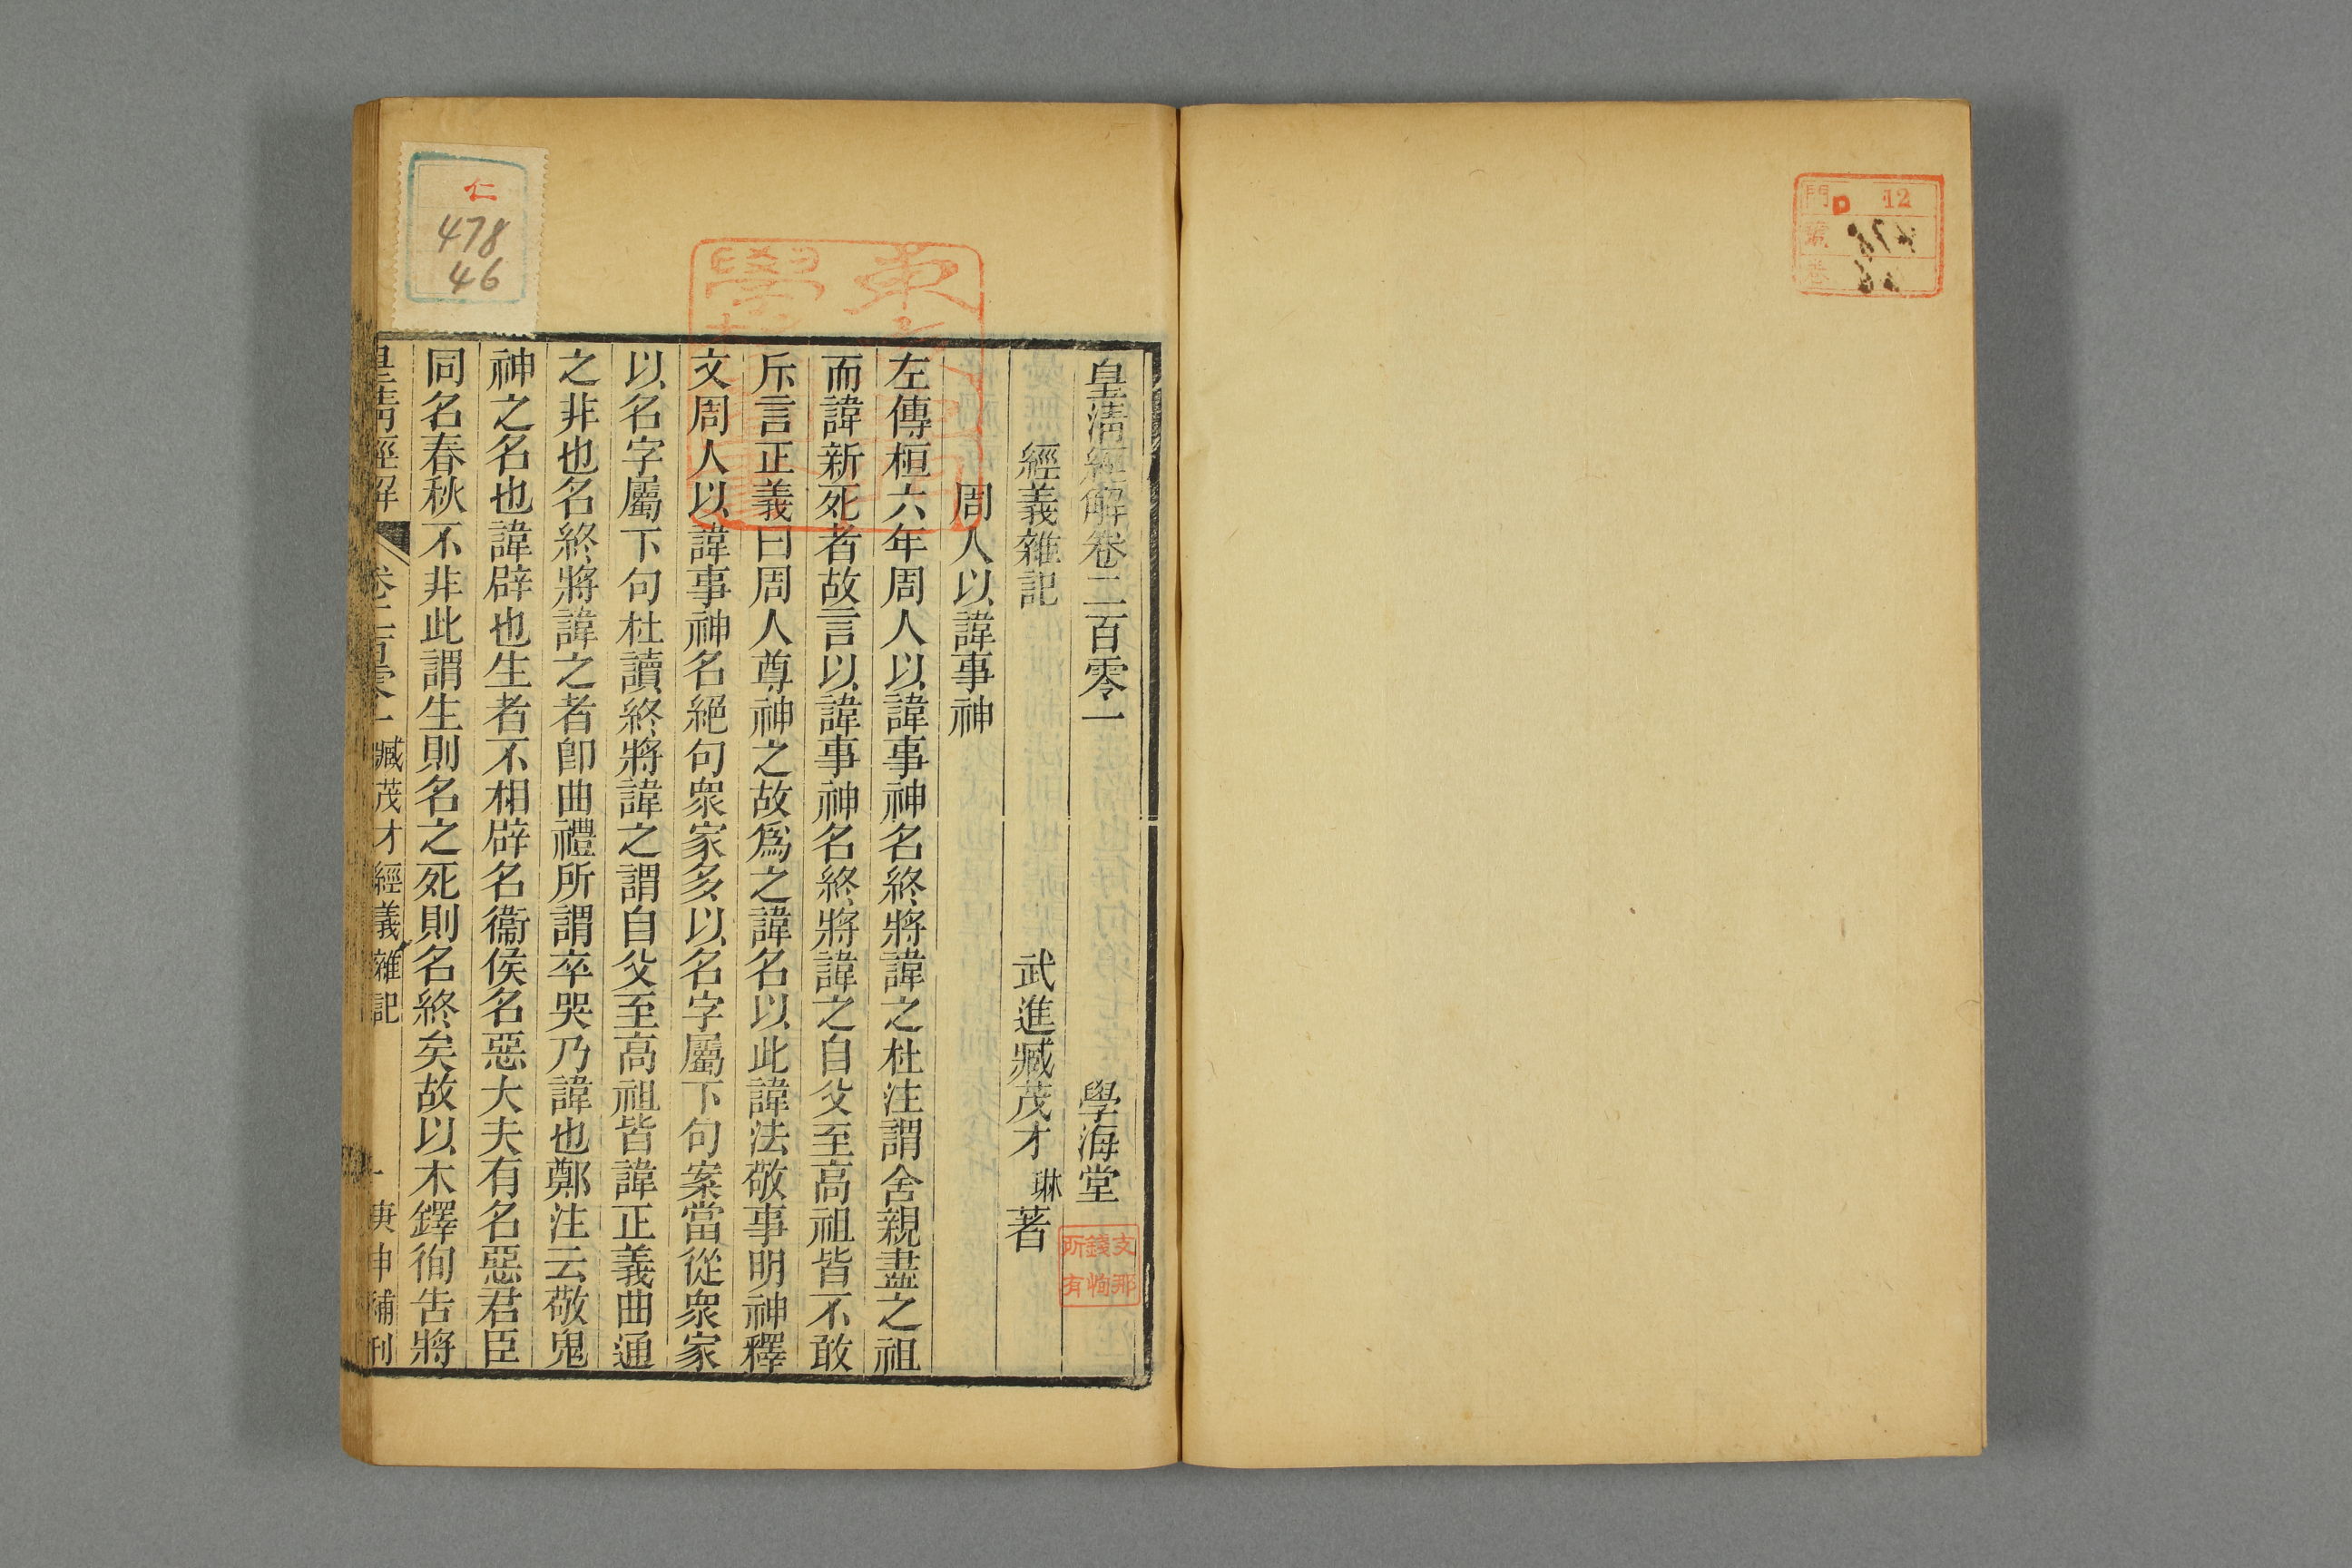 門 12
號
卷
皇清經解卷二百零一 學海堂
支那
錢恂
所有
經義雜記 武進臧茂才琳著
周人以諱事神
左傳桓六年周人以諱事神名終將諱之杜注謂舍親盡之祖
而諱新死者故言以諱事神名終將諱之自父至高祖皆不敢
斥言正義曰周人尊神之故爲之諱名以此諱法敬事明神釋
文周人以諱事神名絕句衆家多以名字屬下句案當從衆家
以名字屬下句杜讀終將諱之謂自父至高祖皆諱正義曲通
之非也名終將諱之者卽曲禮所謂卒哭乃諱也鄭注云敬鬼
神之名也諱辟也生者不相辟名衞侯名惡大夫有名惡君臣
同名春秋不非此謂生則名之死則名終矣故以木鐸徇吿將
皇清經解 卷二百零一 臧茂才經義雜記 一 庚申補刊
仁
478
46